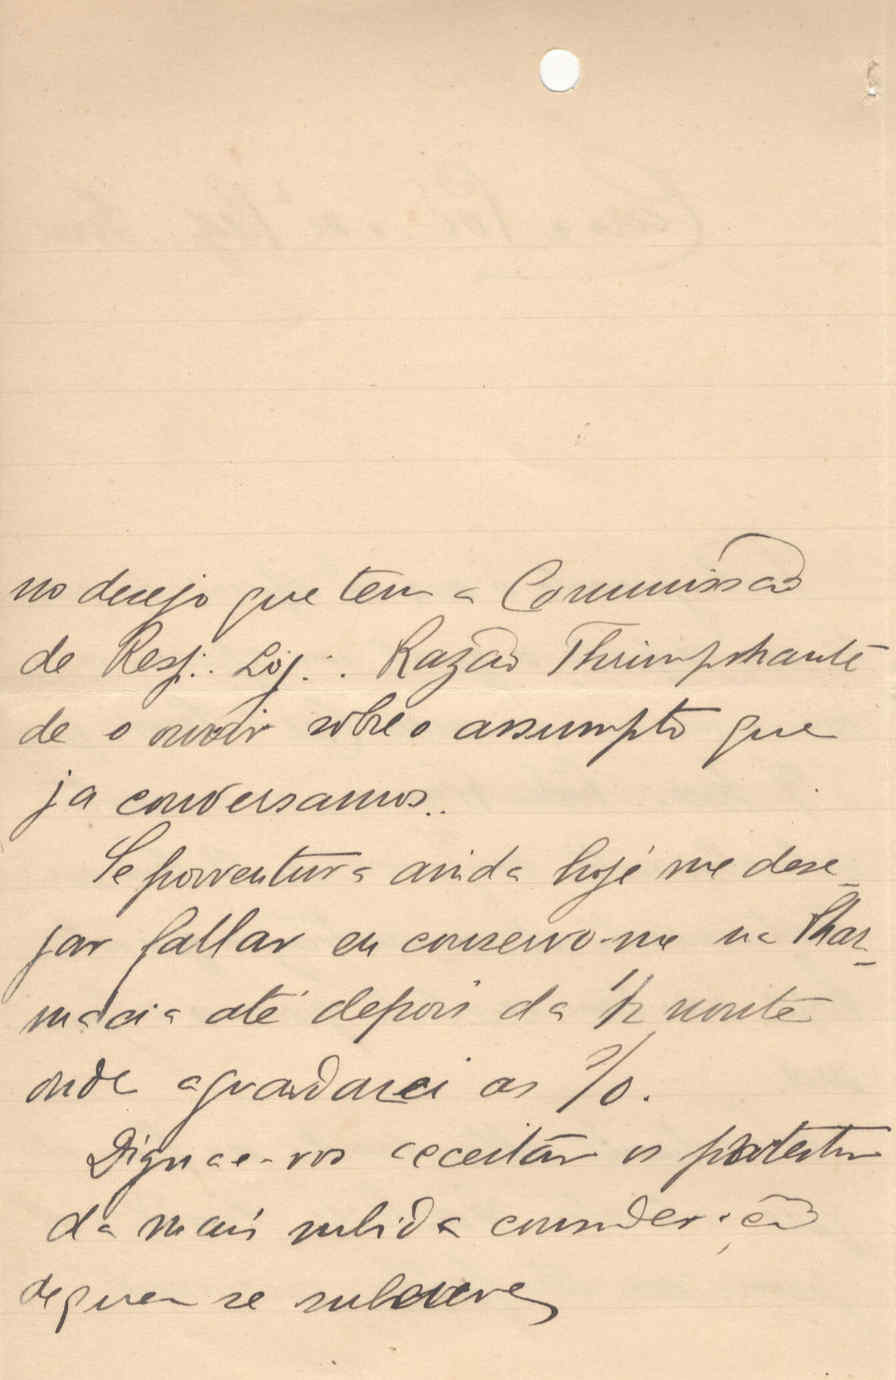 no desejo que tem a Commissão
de Resp∴ Loj∴ Razão Thriumphante
de o ouvir sobre o assumpto que
já conversamos..
Se porventura ainda hoje me dese-
jar fallar eu conservo-me na Phar-
macia até depois da 1/2 noute
onde aguardarei as
Dignae-vos acceitar os protestos
da mais subida consideração
de quem se subscreve